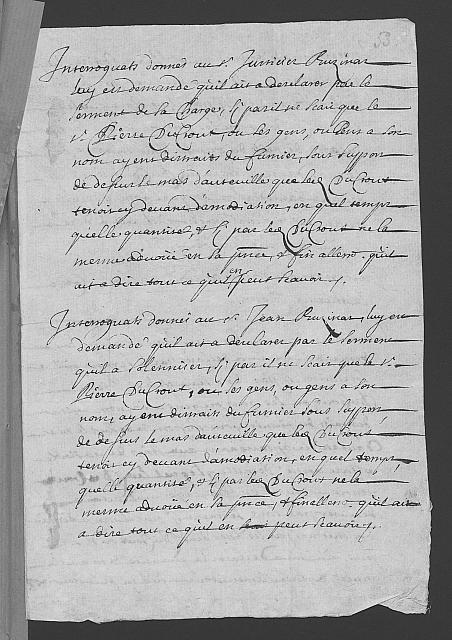 53
Interroquats donnés au sr. Justicier Puzinar
Luy est demandé qu'il ait a declarer par le
Serment de sa Charge, sy par il ne scait que le
sr. Pierre DuCrout, ou ses gens, ou gens a son
nom ayent distraits du fumier, sous suppon
de dessus le mas d'auteuille que led. DuCrout
tenoit cy devant d'amodiation, en quel temps
quelle quantité, et sy par led. DuCrout ne la
mesme advoué en sa pnce, et finallemt. qu'il
ait a dire tout ce qu'il en peut scavoir.
Interroquats donnés au sr. Jean Puzinar, luy est
demandé qu'il ait a declarer par le serment
qu'il a Solenniser, sy par il ne scait que le sr.
Pierre DuCrout, ou ses gens, ou gens a son
nom, ayent distraits du fumier sous suppon
de dessus le mas dauteuille que led. DuCrout
tenoit cy devant d'amodiation, en quel temps,
quelle quantité, et sy par led. DuCrout ne la
mesme advoüé en sa pnce, et finallemt. qu'il ait
a dire tout ce qu'il en peut scavoir.